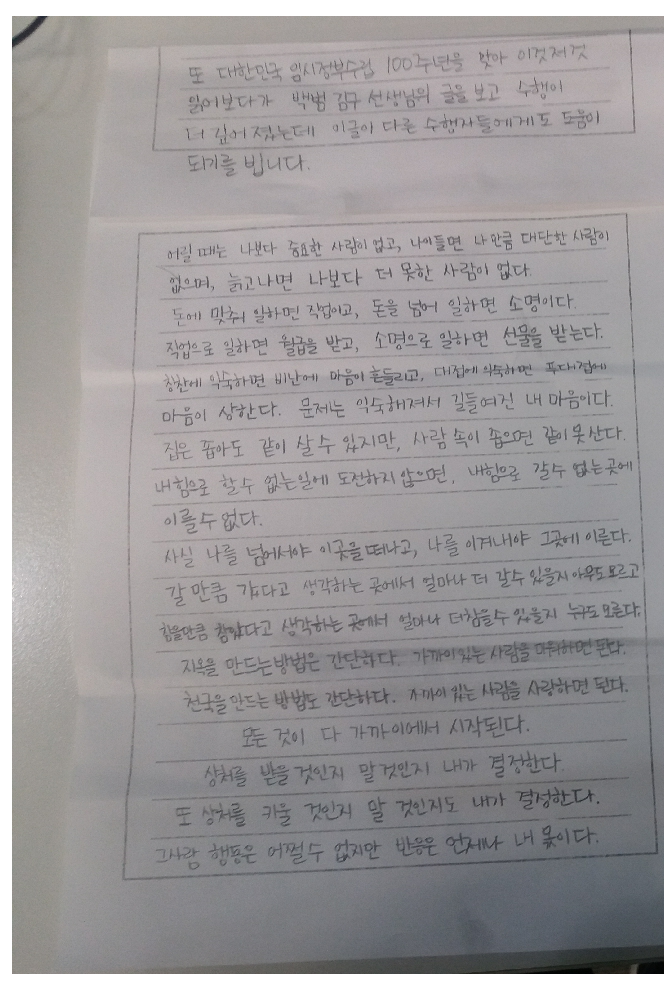 또 대한민국 임시정부수립 100주년을 맞아 이것저것
읽어보다가 백범 김구 선생님의 글을 보고 수행이
더 깊어졌는데 이글이 다른 수행자들에게도 도움이
되기를 빕니다.
어릴 때는 나보다 중요한 사람이 없고, 나이들면 나만큼 대단한 사람이
없으며, 늙고나면 나보다 더 못한 사람이 없다.
돈에 맞춰 일하면 직업이고, 돈을 넘어 일하면 소명이다.
직업으로 일하면 월급을 받고, 소명으로 일하면 선물을 받는다.
칭찬에 익숙하면 비난에 마음이 흔들리고, 대접에 익숙하면 푸대접에
마음이 상한다. 문제는 익숙해져서 길들여진 내 마음이다.
집은 좁아도 같이 살 수 있지만, 사람 속이 좁으면 같이 못 산다.
내 힘으로 할 수 없는 일에 도전하지 않으면, 내 힘으로 갈 수 없는 곳에
이를 수 없다.
사실 나를 넘어서야 이곳을 떠나고, 나를 이겨내야 그곳에 이른다.
갈 만큼 갔다고 생각하는 곳에서 얼마나 더 갈 수 있을지 아무도 모르고
참을만큼 참았다고 생각하는 곳에서 얼마나 더 참을 수 있을지 누구도 모른다.
지옥을 만드는 방법은 간단하다. 가까이 있는 사람을 미워하면 된다.
천국을 만드는 방법도 간단하다. 가까이 있는 사람을 사랑하면 된다.
모든 것이 다 가까이에서 시작된다.
상처를 받을 것인지 말 것인지 내가 결정한다.
또 상처를 키울 것인지 말 것인지도 내가 결정한다.
그사람 행동은 어쩔 수 없지만 반응은 언제나 내 몫이다.